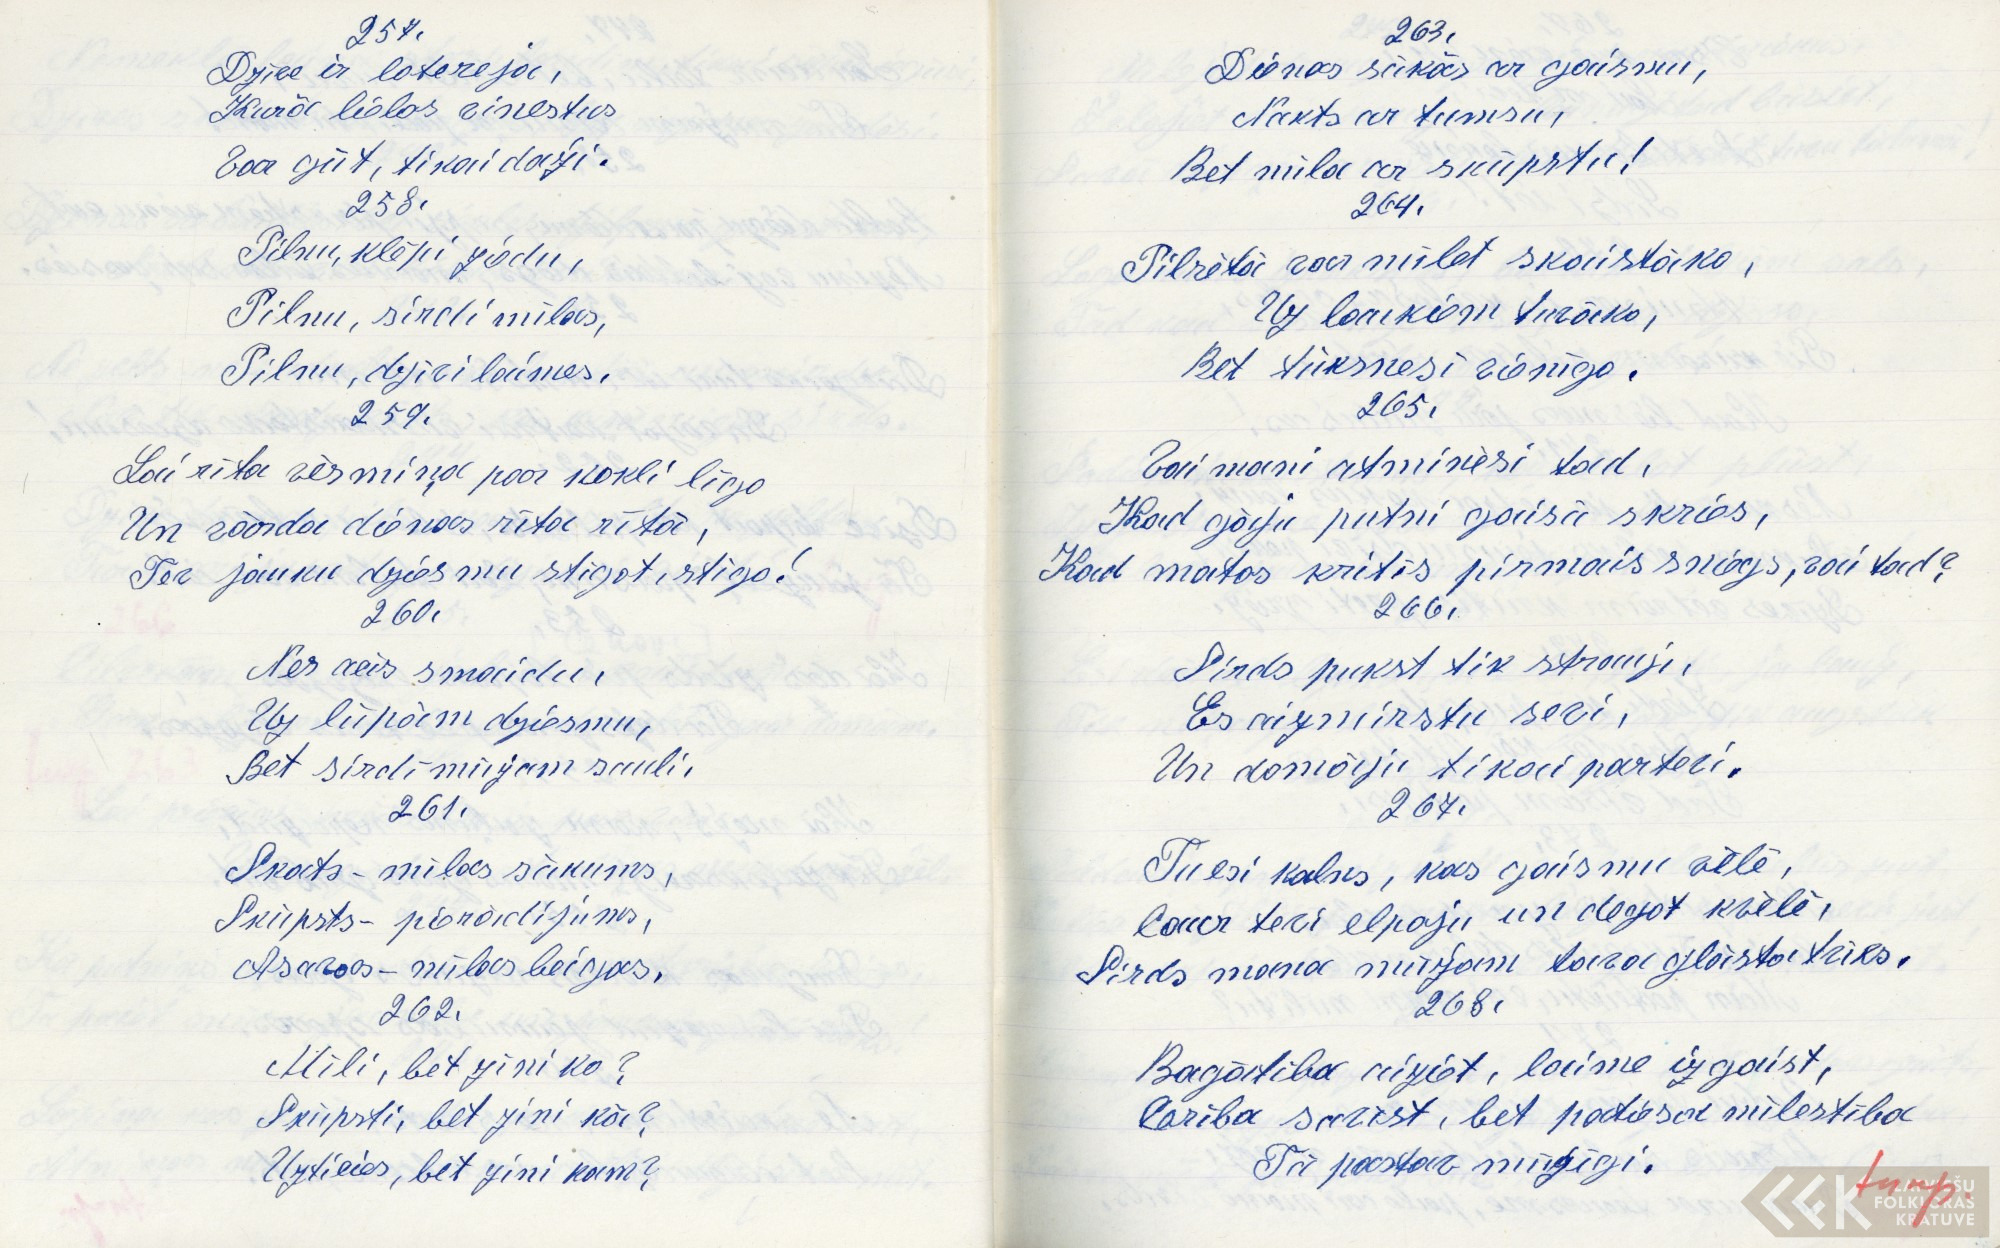 257.
Dzīve ir loterejа,
Kurā lielos vinestus
Var gūt, tikai daži.
258.
Pilnu, klēpi ziedu,
Pilnu, sirdi mīlas,
Pilnu, dzīvi laimes.
259.
Lai rīta vēsmiņa par kokli līgo
Un vārda dienas rīta rītā,
Tev jauku dziesmu stīgot, stīgo!
260.
Nes acīs smaidu,
Uz lūpām dziesmu,
Bet sirdī mūžam sauli.
261.
Skats - mīlas sākums,
Skūpsts - pierādījums,
Asaras - mīlas beigas.
262.
Mīli, bet zini ko?
Skūpsti, bet zini kā?
Uzticies, bet zini kam?
263.
Dienas sākās ar gaismu,
Nakts ar tumsu,
Bet mīla ar skūpstu!
264.
Pilsētā var mīlet skaistāko,
Uz laukiem turāko,
Bet tuksnesī vienīgo.
265.
Vai mani atminēsi tad,
Kad gāju putni gaisā skries,
Kad matos kritīs pirmais sniegs, vai tad?
266.
Sirds pukst tik strauji,
Es aizmirstu sevi,
Un domāju tikai par tevi.
267.
Tu esi kalns, kas gaismu vēlē,
Caur tevi elpoju un degot kvēlē,
Sirds mana mūžam tava glāsta trūks.
268.
Bagātība aiziet, laime izgaist,
Cerība saviļ, bet patiesa mīlestība
Tā pastāv mūžīgi.
turp.
LFK
LATVIEŠU
FOLKLORAS
KRĀTUVE